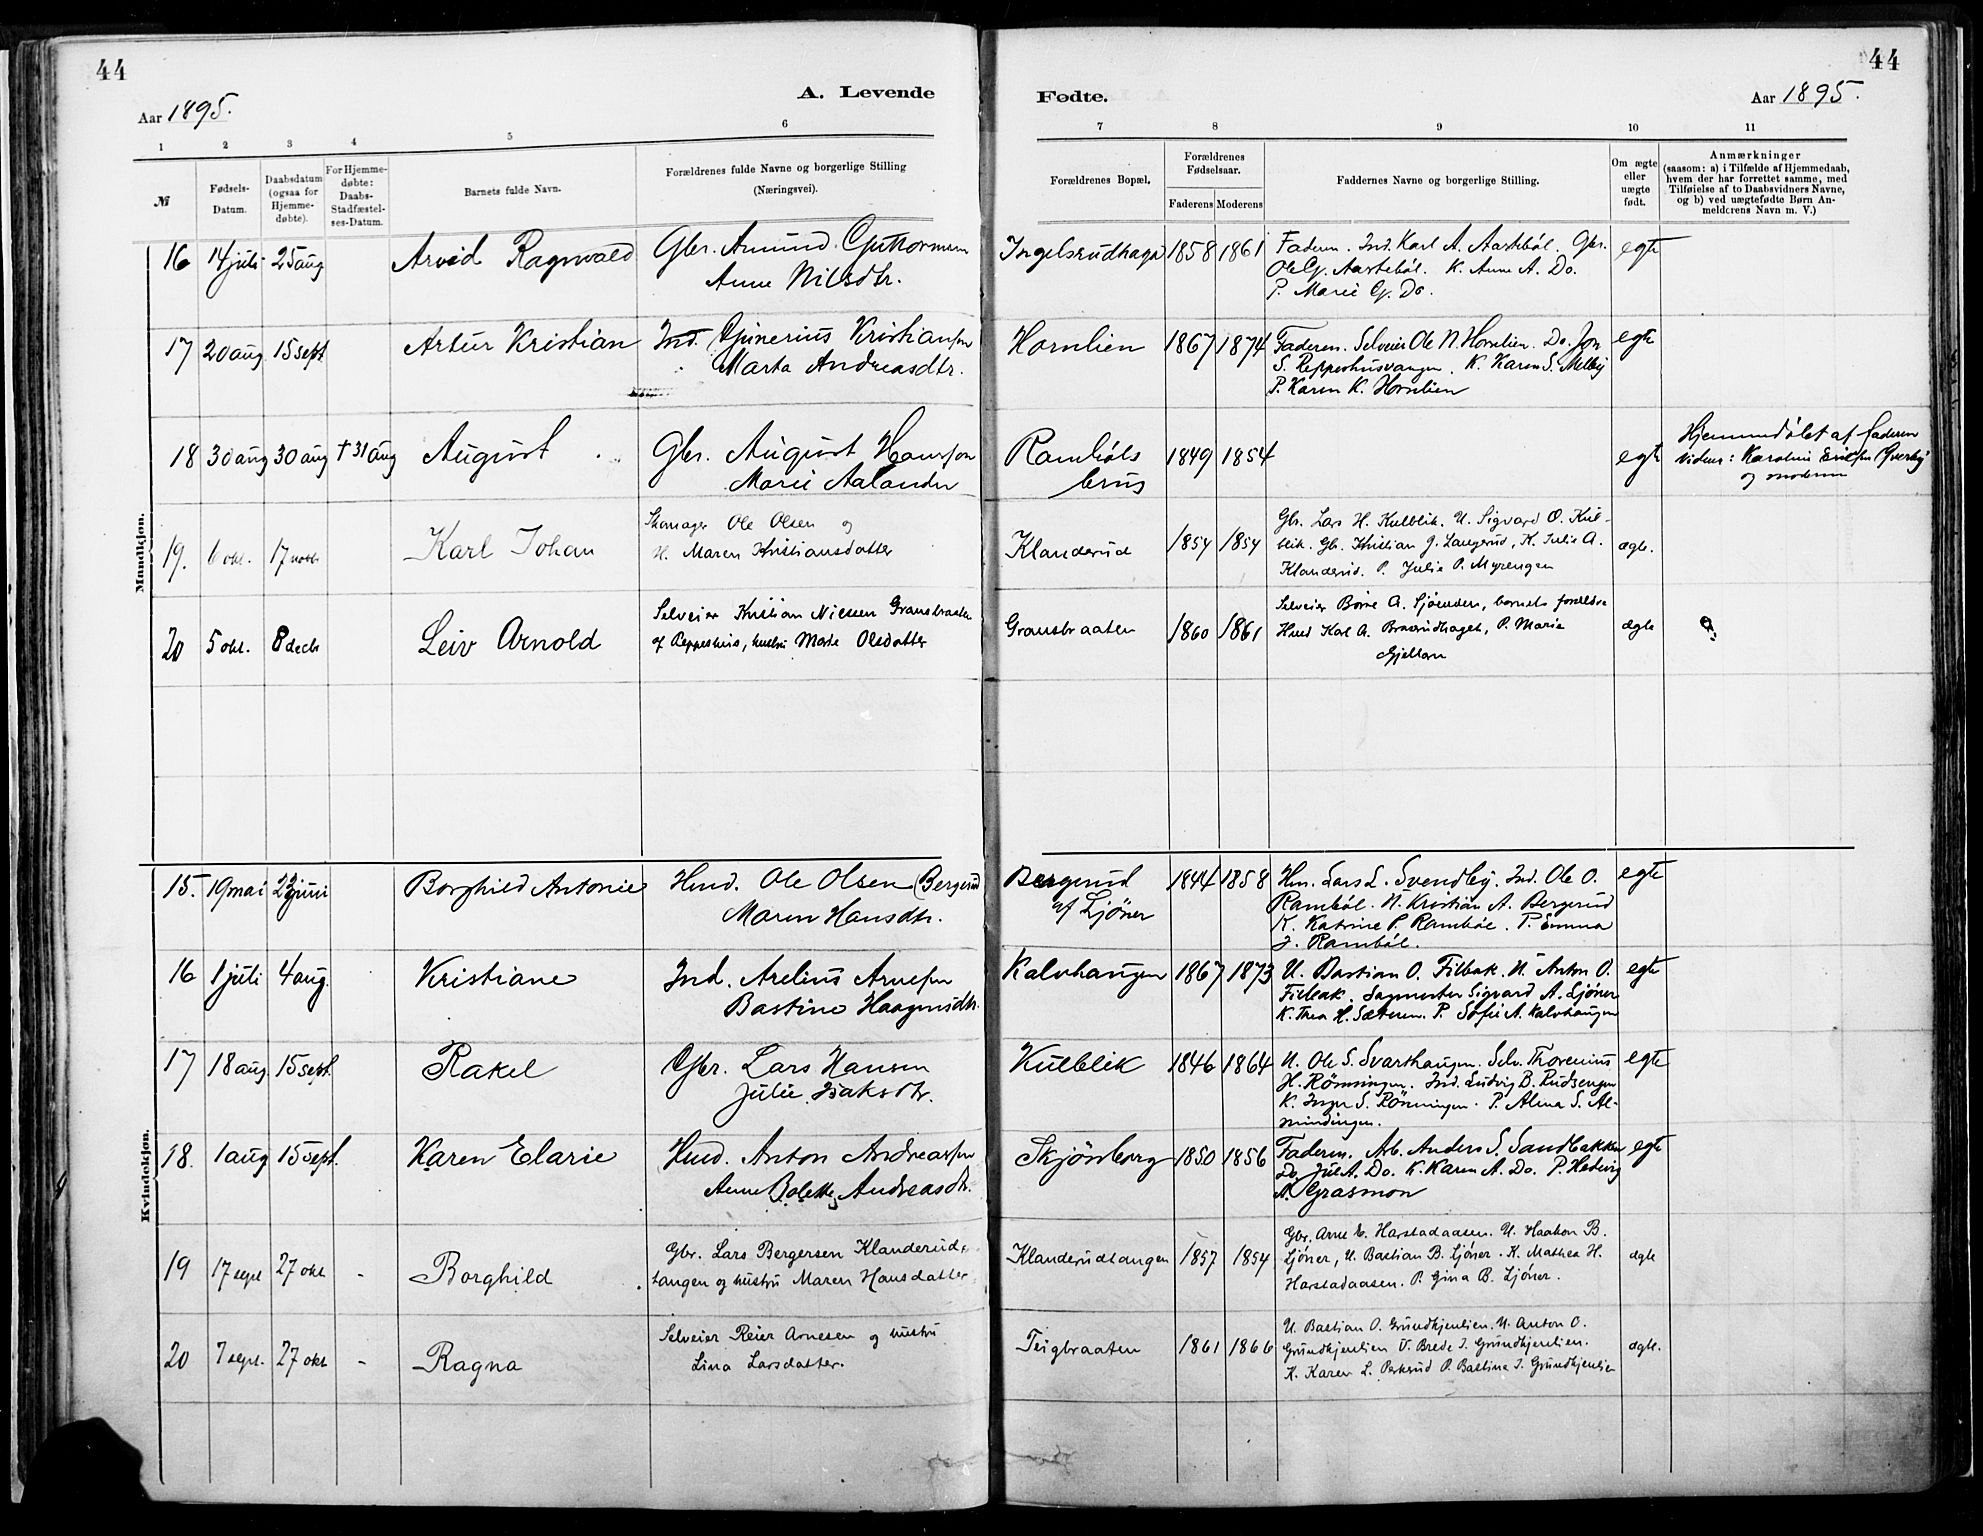 44
44
Aar 1895.
A. Levende
Fødte.
Aar 1895.
1 2 3 4 5 6
7 8 9 10 11
№
Fødsels-
Datum.
Daabsdatum
(ogsaa for
Hjemme-
døbte).
For Hjemme-
døbte:
Daabs-
Stadfæstel-
ses-Datum.
Barnets fulde Navn.
Forældrenes fulde Navne og borgerlige Stilling
(Næringsvei).
Forældrenes Bopæl.
Forældrenes
Fødselsaar.
Faderens Moderens
Faddernes Navne og borgerlige Stilling.
Om ægte
eller
uægte
født.
Anmærkninger
(saasom: a) i Tilfælde af Hjemmedaab,
hvem der har forrettet samme, med
Tilføielse af to Daabsvidners Navne,
og b) ved uægtefødte Børn An-
melderens Navn m. V.)
Mandkjøn.
16 14 juli 25 aug Arvid Ragnvald
Gbr. Amund Guttormsen
Anne Nilsdtr.
Ingelsrudhaga 1858 1861
Faderen. Ind. Karl A. Aastebøl. Gbr.
Ole G. Aastebøl. K. Anne A. Do.
P. Marie G. Do.
egte
17 20 aug. 15 sept Artur Kristian
Ind. Gunerius Kristiansen
Marta Andreasdtr.
Hornlien 1867 1874
Faderen. Selveier Ole N. Hornlien. Do. Jon
S. Reppeshusvangen. K. Karen S. Melby
P. Karen K. Hornlien
egte
18 30 aug 30 aug † 31 aug August
Gbr. August Hansen
Marie Aalander
Ramböls
brug
1849 1854
egte
Hjemmedøbt af faderen
Vidner: Karoline Eriksen Gverby
og moderen
19. 6 okt. 17 novbr Karl Johan
Skomager Ole Olsen og
H. Maren Kristiansdatter
Klanderud 1854 1854
Gbr. Lars H. Kulblik. U. Sigvard O. Kul-
blik. Gb. Kristian G. Langerud, K. Julie A.
Klanderud. P. Julie P. Myrengen
ægte.
20 5 okt. 8 decbr Leiv Arnold
Selveier Kristian Nilsen Granbraaten
af Reppeshus, hustru Marte Olsdatter
Granbraaten 1860 1861
Selveier Börre A. Sjöenden, barnets forældre
Hmd Karl A. Braarudhaget, P. Marie
Gjeltorn
ægte
Kvindekjøn.
15. 19 mai 23 juni Borghild Antonie
Hmd. Ole Olsen (Bergerud
Maren Hansdtr.
Bergerud
af Ljöner
1844 1858
Hm. Lars L. Svendby. Ind. Ole O.
Ramböl. U. Kristian A. Bergerud
K. Katrine P. Ramböl. P. Emma
J. Ramböl.
egte
16 1 juli 4 aug. Kristiane
Ind. Arelius Arnesen
Bastine Haagensdtr.
Kalvhaugen 1867 1873
U. Bastian O. Filbak. U. Anton O.
Filbak. Sagmester Sigvard A. Ljöner
K. Thea H. Sæteren. P. Sofie A. Kalvhaugen
egte
17 18 aug 15 sept. Rakel
Gbr. Lars Hansen
Julie Isaksdtr.
Kulblik 1846 1864
U. Ole S. Svarthaugen. Selv. Thorenius
H. Rönningen. Ind. Ludvig B. Rudsengen
K. Inger S. Rönningen. P. Alma S. Al-
mindingen.
egte
18. 1 aug 15 sept. Karen Elarie
Hmd. Anton Andreassen
Anne Bolette Andreasdtr.
Skjönborg 1850 1856
Faderen. Arb. Anders S. Sandbakken
Do. Jul A. Do. K. Karen A. Do. P. Hedvig
A. Grasmon
egte
19 17 sept 27 okt - Borghild
Gbr. Lars Bergersen Klanderud-
tangen og hustru Maren Hansdatter
Klanderudtangen 1857 1854
Gbr. Arne E. Harstadaasen. U. Haakon B.
Ljöner, U. Bastian B. Ljöner. K. Mathea H.
Harstadaasen. P. Gina B. Ljöner.
ægte
20 7 sept. 27 okt - Ragna
Selveier Reier Arnesen og hustru
Lina Larsdatter.
Teigbraaten 1861 1866
U. Bastian O. Grundkjenlien. U. Anton O.
Grundkjenlien U. Brede J. Grundkjenlien.
K. Karen L. Perkrud P. Bastina J. Grundkjenlien
ægte.